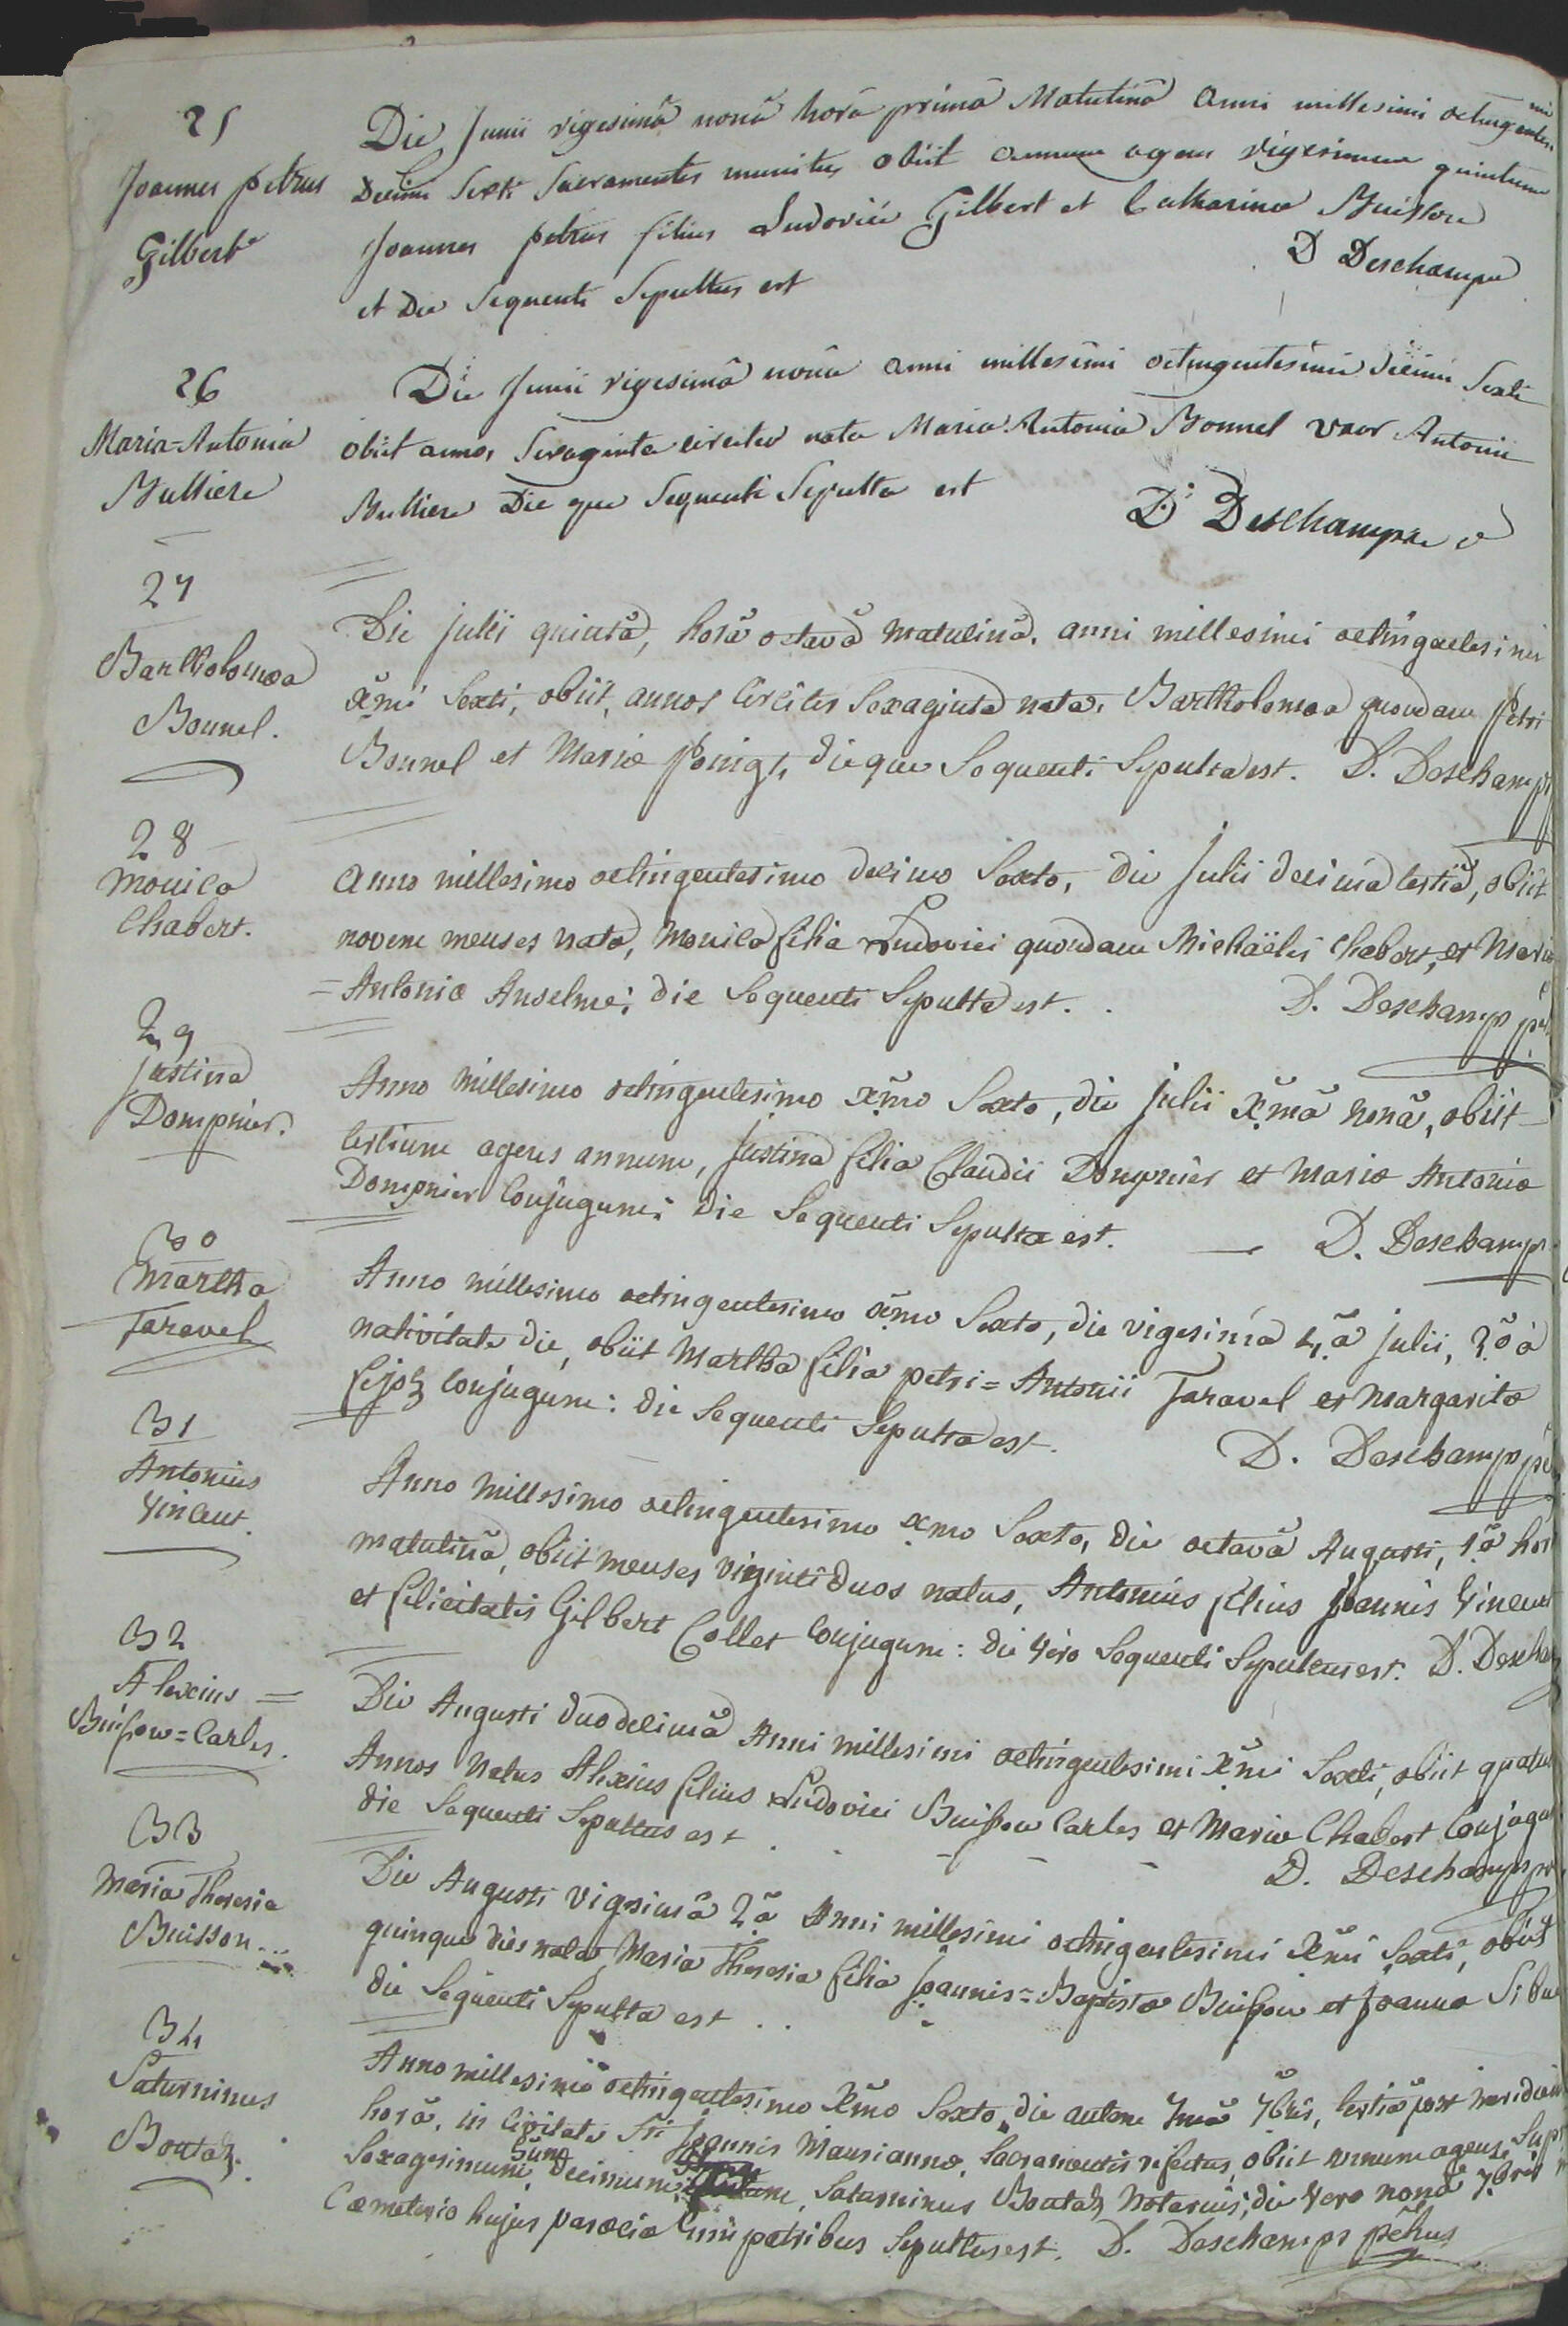 25
Joannes petrus
Gilbert
Die Junii vigesimâ nonâ horâ primâ Matutinâ anni millesimi octingentesimi
Decimi Sexti Sacramentis munitus obiit annum agens vigesimum quintum
Joannes petrus filius Ludovici Gilbert et Catharinæ Buisson
et die Sequenti Sepultus est
D Deschamps
26
Maria=Antonia
Bulliere
Die Junii vigesimâ nonâ anni millesimi octingentesimi decimi Sexti
obiit annos Sexaginta circiter nata Maria Antonia Bonnel uxor Antonii
Bulliere Die que Sequenti Sepulta est
D. Deschamps
27
Bartholomæa
Bonnel.
Die julii quintâ, horâ octavâ matutinâ, anni millesimi octingentesimi
x̃mi Sexti, obiit, annos circiter Sexaginta nata, Bartholomæa quondam Petri
Bonnel et Mariæ Poingt, die que Sequenti Sepulta est. D. Deschamps
28
Monica
Chabert.
Anno millesimo octingentesimo decimo Sexto, die Julii decimâ tertiâ, obiit
novem menses nata, Monica filia Ludovici quondam Michaëlis Chabert, et Mariæ
=Antoniæ Anselme; die Sequenti Sepulta est. .
D. Deschamps
29
Justina
Dompnier.
Anno millesimo octingentesimo x̃mo Sexto, die julii x̃mâ nonâ, obiit
tertium agens annum, Justina filia Claudii Dompnier et Mariæ Antoniæ
Dompnier Conjugum; die Sequenti Sepulta est. — D. Deschamps
30
Martha
Taravel
Anno millesimo octingentesimo x̃mo Sexto, die vigesimâ 4ã Julii, 2õ à
nativitate die, obiit Martha filia petri=Antonii Taravel et Margaritæ
Sejoz Conjugum: die Sequenti Sepulta est.
D. Deschamps
31
Antonius
Vincent.
Anno millesimo octingentesimo xmo Sexto, die octavâ Augusti, 1ã hora
matutinâ, obiit menses viginti duos natus, Antonius filius Joannis Vincent
et felicitatis Gilbert Collet Conjugum: die vero Sequenti Sepultus est. D. Deschamps
32
Alexius =
Buisson=Carles.
Die Augusti duodecimâ Anni millesimi octingentesimi x̃mi Sexti, obiit quatuor
Annos natus Alexius filius Ludovici Buisson Carles et Mariæ Chabert Conjugum
die Sequenti Sepultus est .
D. Deschamps
33
Maria Theresia
Buisson...
Die Augusti vigesimâ 2ã Anni millesimi octingentesimi x̃mi Sexti, obiit
quinque dies nata Maria Theresia filia Joannis=Baptistæ Buisson et Joannæ Sibue
die Sequenti Sepulta est . .
34
Saturninus
Boutaz.
Anno millesimo octingentesimo x̃mo Sexto, die autem 7mâ 7bris, tertiâ post meridiem
horâ, in Civitate Sti Joannis Maurianne, Sacramentis refectus, obiit annum agens Supra
Sexagesimum, decimum, Saturninus Boutaz Notarius; die vero nonâ 7bris
Cæmeterio hujus paroeciæ cum patribus Sepultus est. D. Deschamps pchus